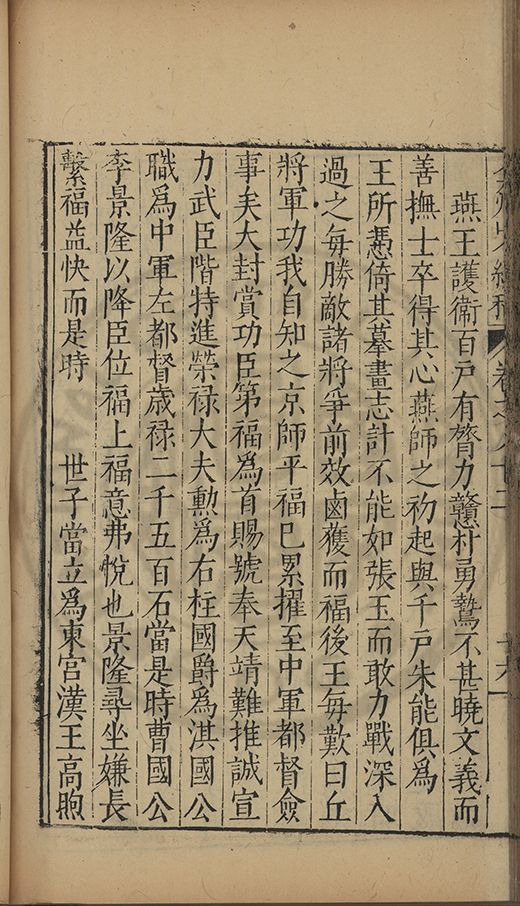 卷之八十二
燕王護衞百戸有膂力戇朴勇鷙不甚曉文義而
善撫士卒得其心燕師之初起與千戸朱能俱爲
王所憑倚其摹畫志計不能如張玉而敢力戰深入
過之每勝敵諸將爭前效鹵蒦而福後王每歎曰丘
將軍功我自知之京師平福已累擢至中軍都督僉
事矣大封賞功臣第福爲首賜號奉天靖難推誠宣
力武臣階特進榮祿大夫勲爲右柱國爵爲淇國公
職爲中軍左都督歲祿二千五百石當是時曹國公
李景隆以降臣位福上福意弗悅也景隆尋坐嫌長
繫福益快而是時　世子當立爲東宮漢王高煦